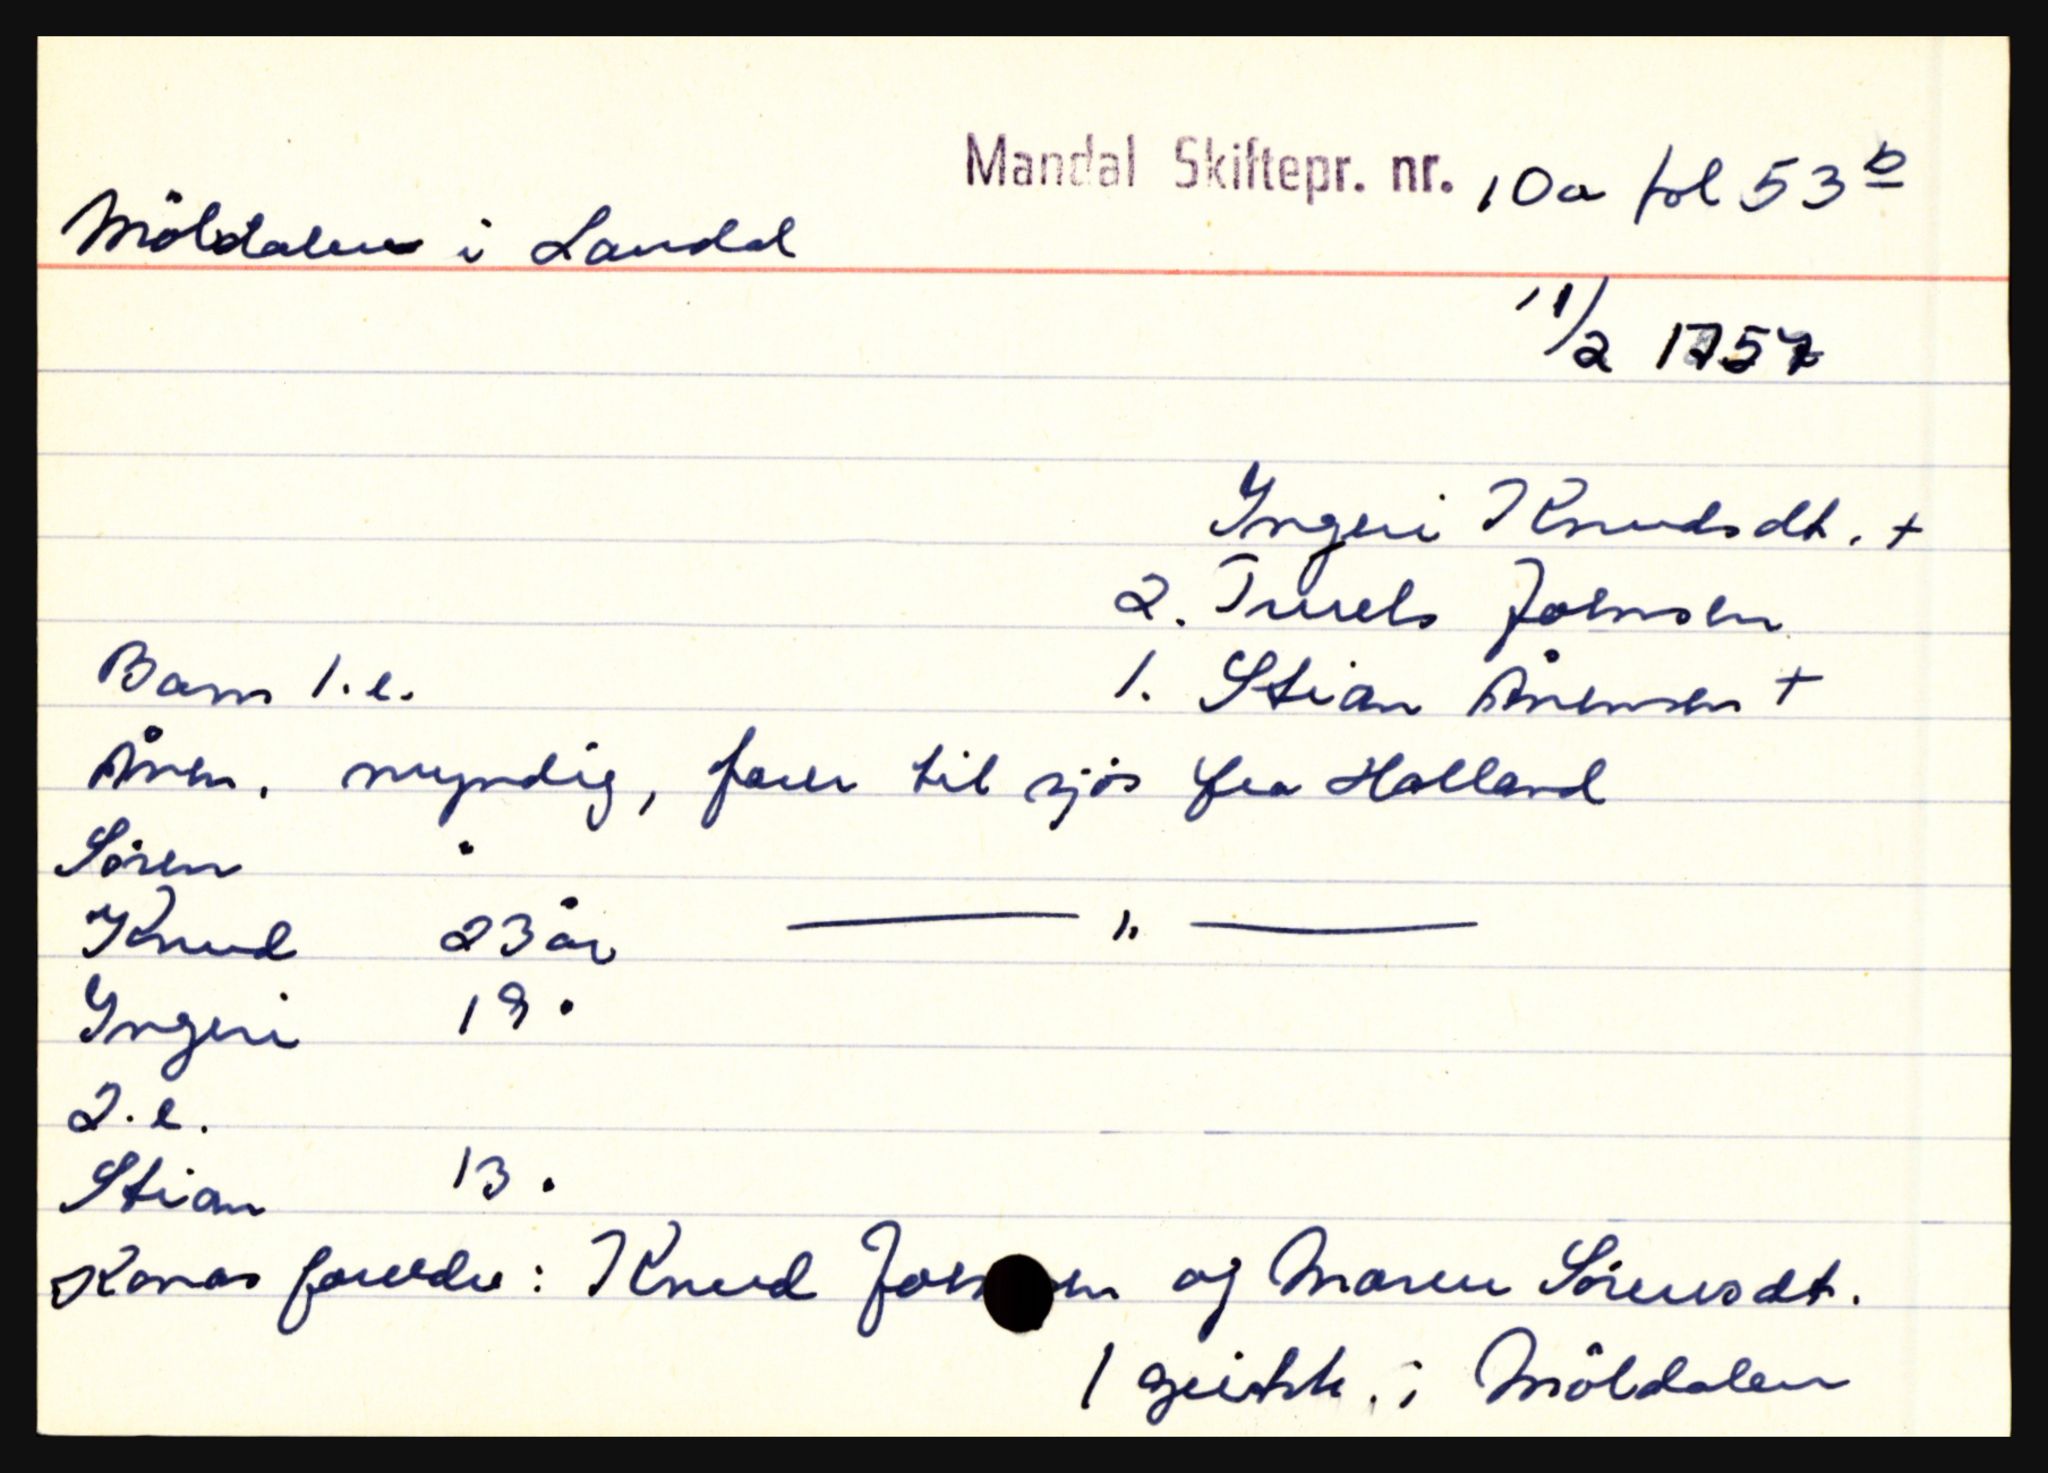 Mandal Skiftepr. nr. 10a fol 53 b
Möldalen i Laudal
11/2 1757
Yngeri Knudsdt. +
2. Truels Joensen
Barn 1.e. 1. Stian Ånensen +
Ånen. myndig, farer til sjøs fra Holland
Sören "
Knud 23 år — " —
Yngeri 19 "
2.e.
Stian 13 "
Konas foreldre: Knud Joensen og Maren Sörensdt.
1 geithh. i Möldalen